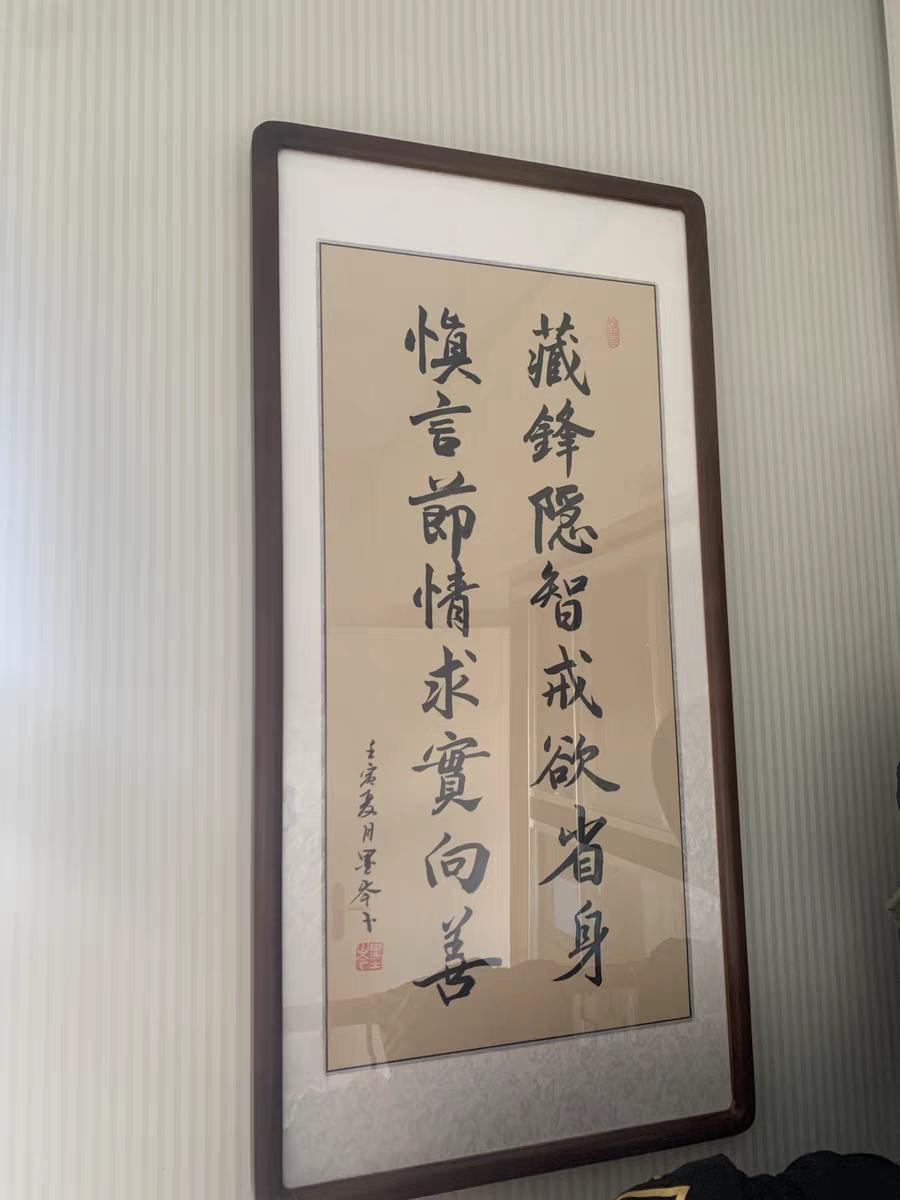 藏鋒隱智戒欲省身
慎言節情求實向善
壬寅夏月墨岑书